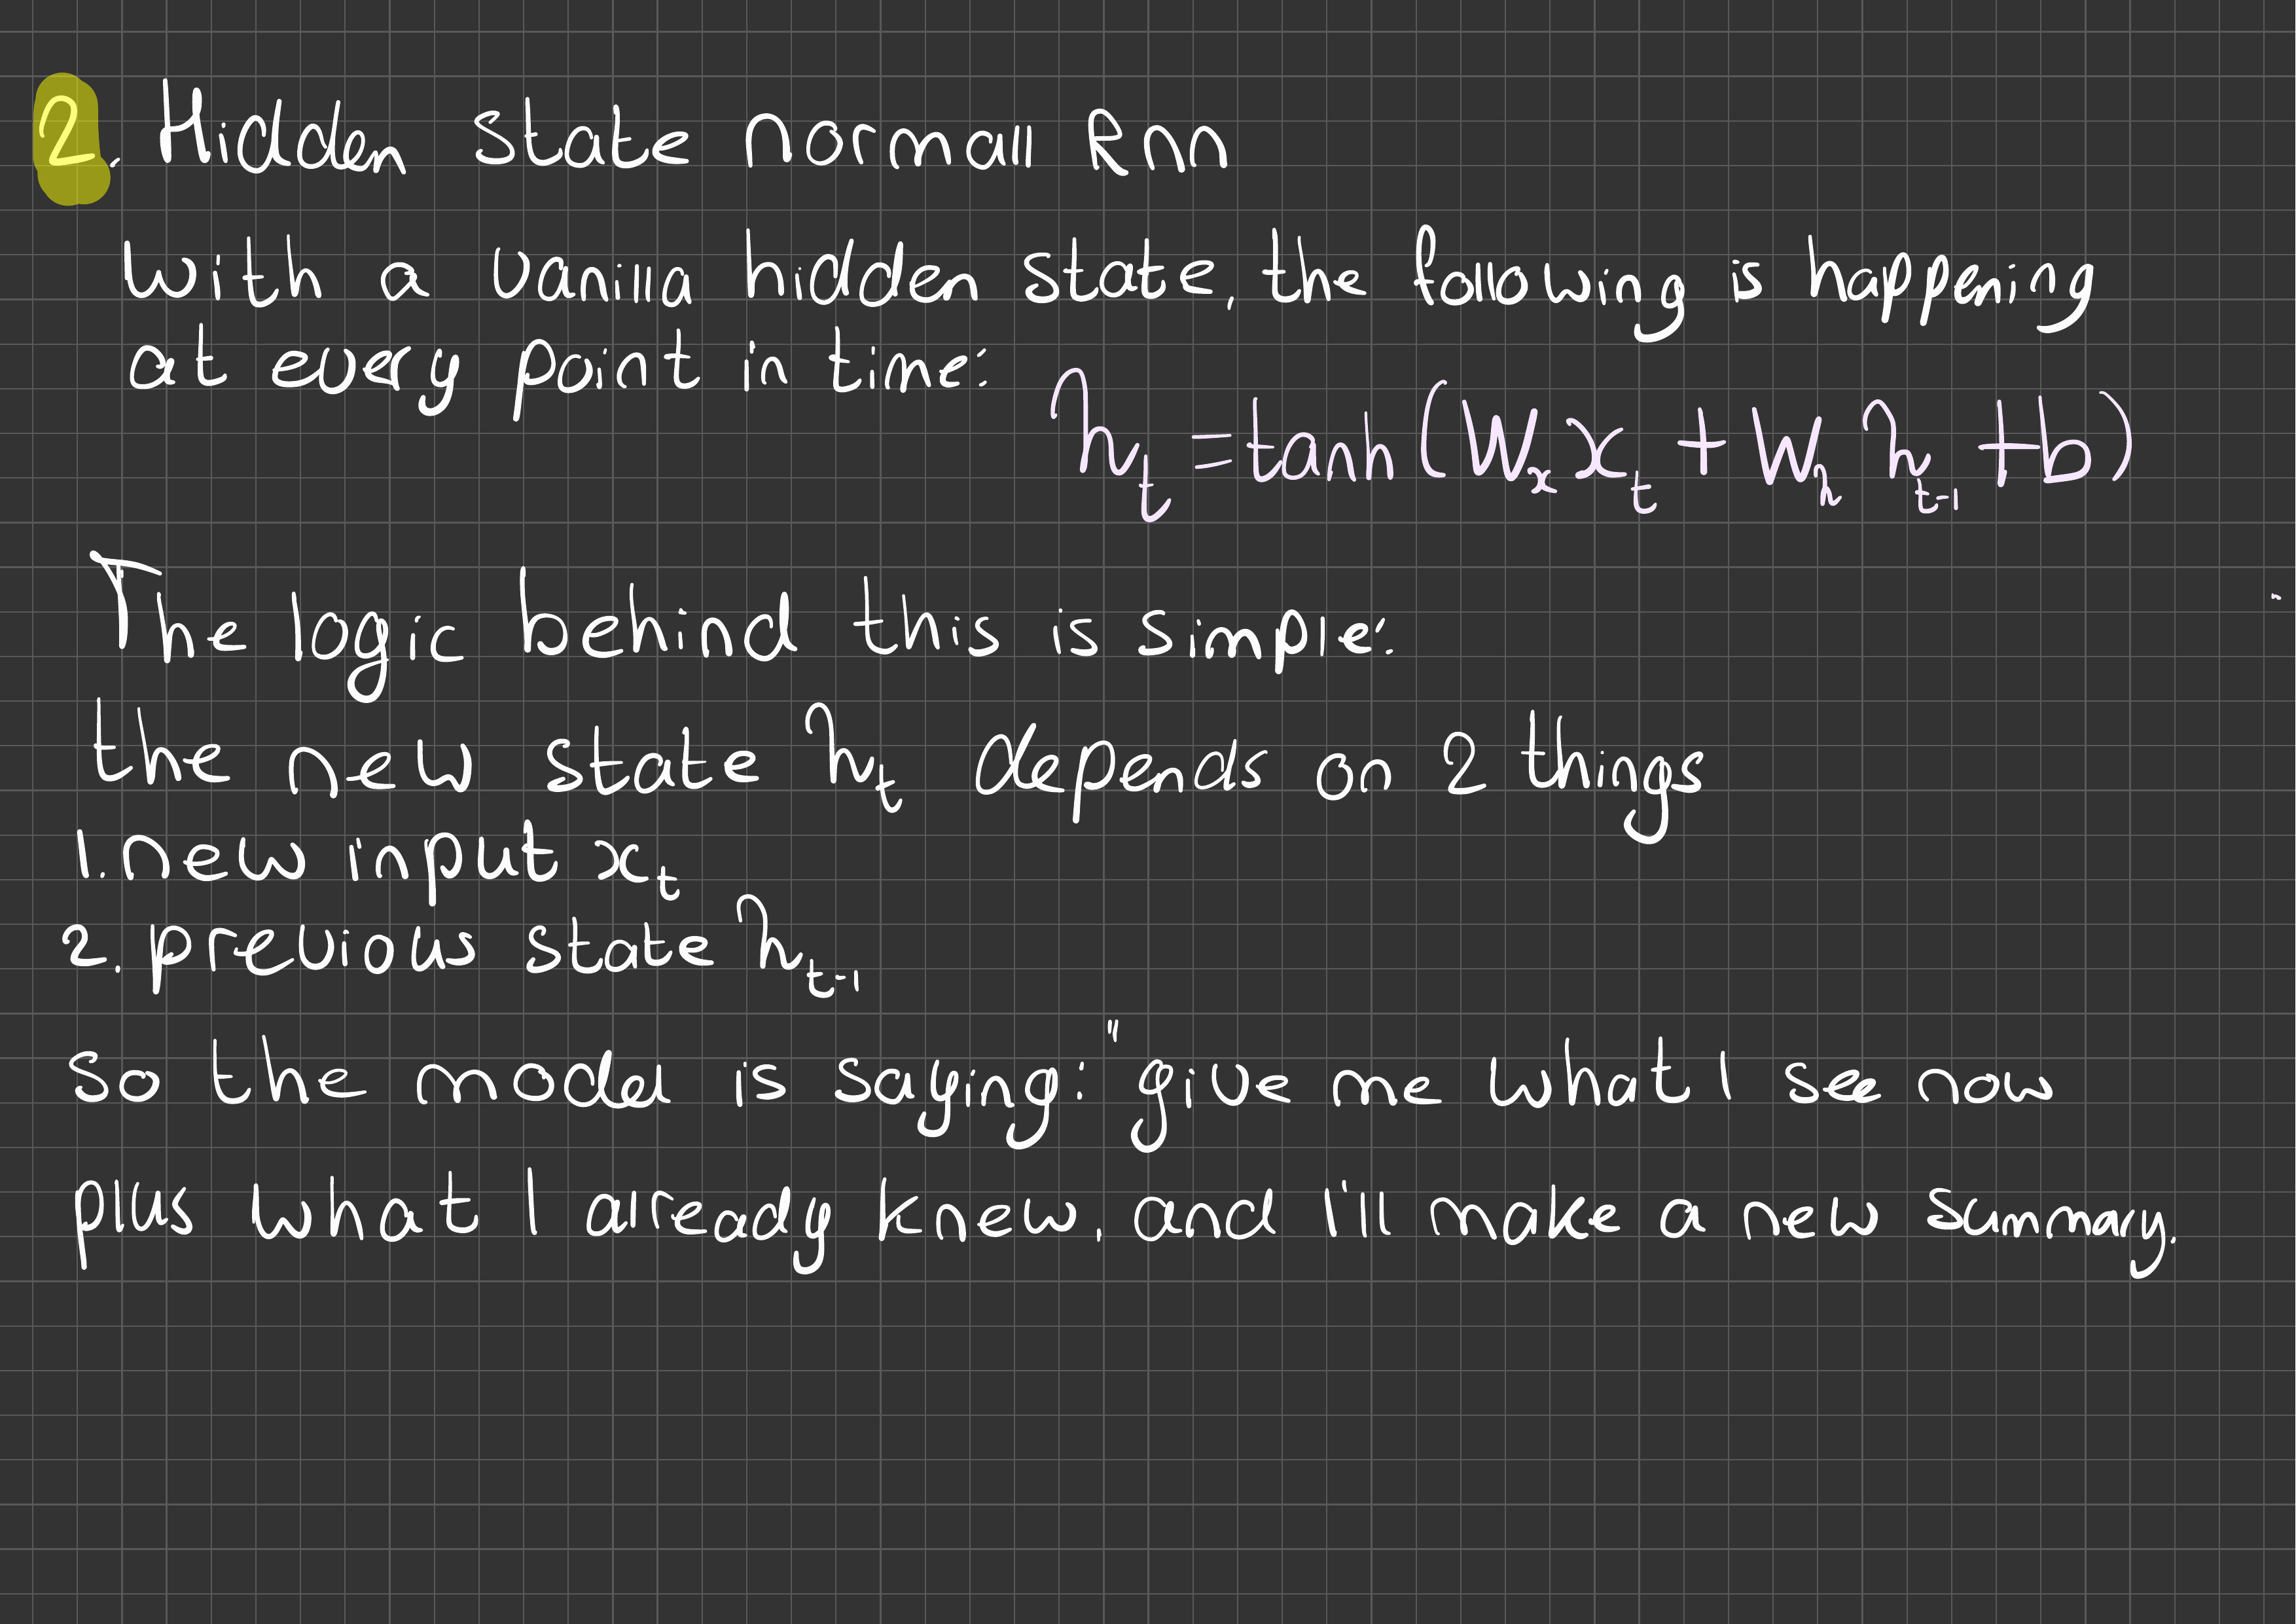 2. Hidden state normall Rnn
with a vanilla hidden state, the following is happening
at every point in time:
hₜ = tanh(Wₓxₜ + Wₕhₜ₋₁ + b)
The logic behind this is simple:
the new state hₜ depends on 2 things
1. new input xₜ
2. previous state hₜ₋₁
so the model is saying: "give me what I see now
plus what I already knew, and I'll make a new summary.